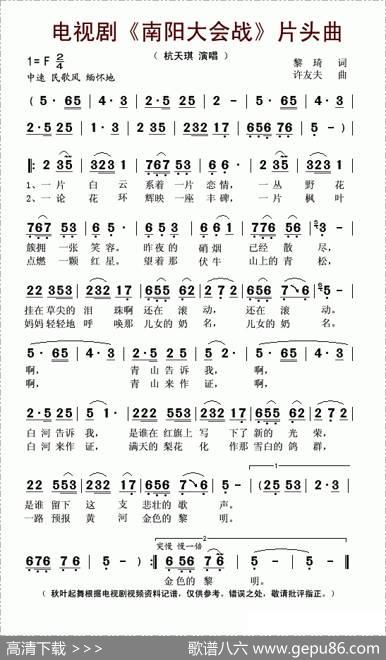 电视剧《南阳大会战》片头曲
（ 杭天琪 演唱 ）
1=F 2/4
黎 琦 词
中速 民歌风 缅怀地
许友夫 曲
( 5· 65 | 4· 3 | 2· 5 25 | 2 7 2 | 222 553 | 232 17 |
2· 5 25 | 2 1· | 656 76 | 5· 65 | 5· 65 ) |
|: 2 35 | 323 1 | 767 53 | 6 6· | 2 35 | 323 1 |
1、一 片 白 云 系着 一 片 恋 情， 一 丛 野 花
2、一 论 花 环 辉映 一 座 丰 碑， 一 片 枫 叶
767 53 | 6 5· | 1 65 | 6 1· | 776 56 | 3 - |
簇拥 一 张 笑 容。 昨夜 的 硝 烟 已经 散 尽，
点燃 一 颗 红 星。 望着 那 伏 牛 山上 的 青 松，
222 35 | 6 5· | 2 35 | 2 7 | 656 1 2 | 5 - |
挂在草尖的 泪 珠啊 还在 滚 动， 还在 滚 动。
妈妈轻轻地 呼 唤那 儿女 的 奶 名， 儿女的 奶 名。
5· 65 | 4· 3 | 2· 5 25 | 2 1· | 5· 65 | 4· 3 |
啊， 青 山 告诉 我， 啊，
啊， 青 山 来作 证， 啊，
2· 5 25 | 2 7 2 | 222 553 | 232 17 | 655 62 | 2 7 2 |
白 河 告诉 我， 是谁在 红旗上 写 下了 新的 光 荣，
白 河 来作 证， 满天的 梨花 化 作那 雪白的 鸽 群，
222 553 | 232 17 | 656 76 | 5 - | (2 25 53 |
是谁 留下 这 支 悲壮的 歌 声。
一路 预报 黄 河 金色的 黎 明。
突慢 慢一倍
676 76 | 5· 65 | 5· 65 ) :| 656 76 | 5 - | 5 - ‖
金色的 黎 明。
（ 秋叶起舞根据电视剧视频资料记谱，仅供参考。错误之处，敬请批评指正。）
高清下载 >>>
歌谱八六 www.gepu86.com